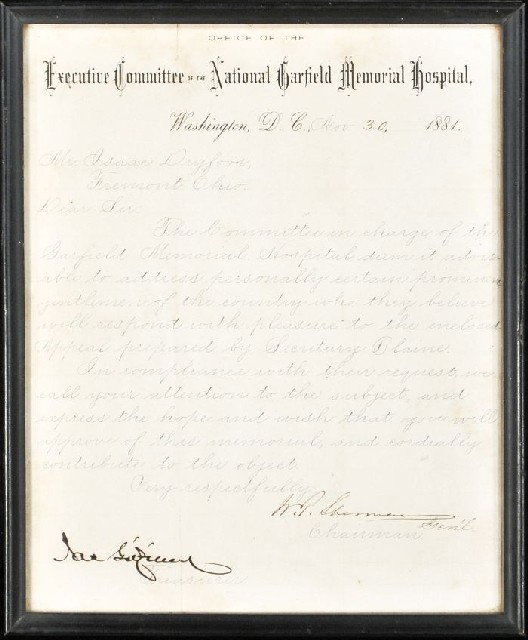 OFFICE OF THE
Executive Committee OF THE National Garfield Memorial Hospital,
Washington, D. C., Nov 30, 1881.
Mr. Isaac
Fremont Ohio.
Dear Sir
The Committee in charge of the
Garfield Memorial Hospital deem it advis-
able to address personally certain prominent
gentlemen of the country who they believe
will respond with pleasure to the enclosed
Appeal prepared by Secretary Blaine.
In compliance with their request, we
call your attention to the subject, and
express the hope and wish that you will
approve of this memorial, and cordially
contribute to the object.
Very respectfully
W. T. Sherman
Chairman